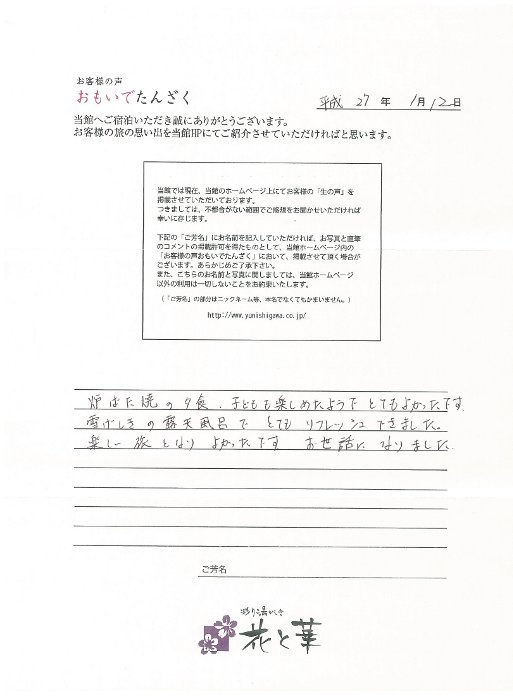 お客様の声
おもいでたんざく
平成 27 年 1月 12日
当館へご宿泊いただき誠にありがとうございます。
お客様の旅の思い出を当館HPにてご紹介させていただければと思います。
当館では現在、当館のホームページ上にてお客様の「生の声」を
掲載させていただいております。
つきましては、不都合がない範囲でご感想をお聞かせいただければ
幸いに存じます。
下記の「ご芳名」にお名前を記入していただければ、お写真と直筆
のコメントの掲載許可を得たものとして、当館ホームページ内の
「お客様の声おもいでたんざく」において、掲載させて頂く場合が
ございます。あらかじめご了承下さい。
また、こちらのお名前と写真に関しましては、当館ホームページ
以外の利用は一切しないことをお約束いたします。
（「ご芳名」の部分はニックネーム等、本名でなくてもかまいません。）
http://www.yuniishigawa.co.jp/
炉ばた焼の夕食、子どもも楽しめたようでとてもよかったです。
雪げしきの露天風呂でとてもリフレッシュできました。
楽しい旅となりよかったです お世話になりました。
ご芳名
彩り湯かしき
花と華